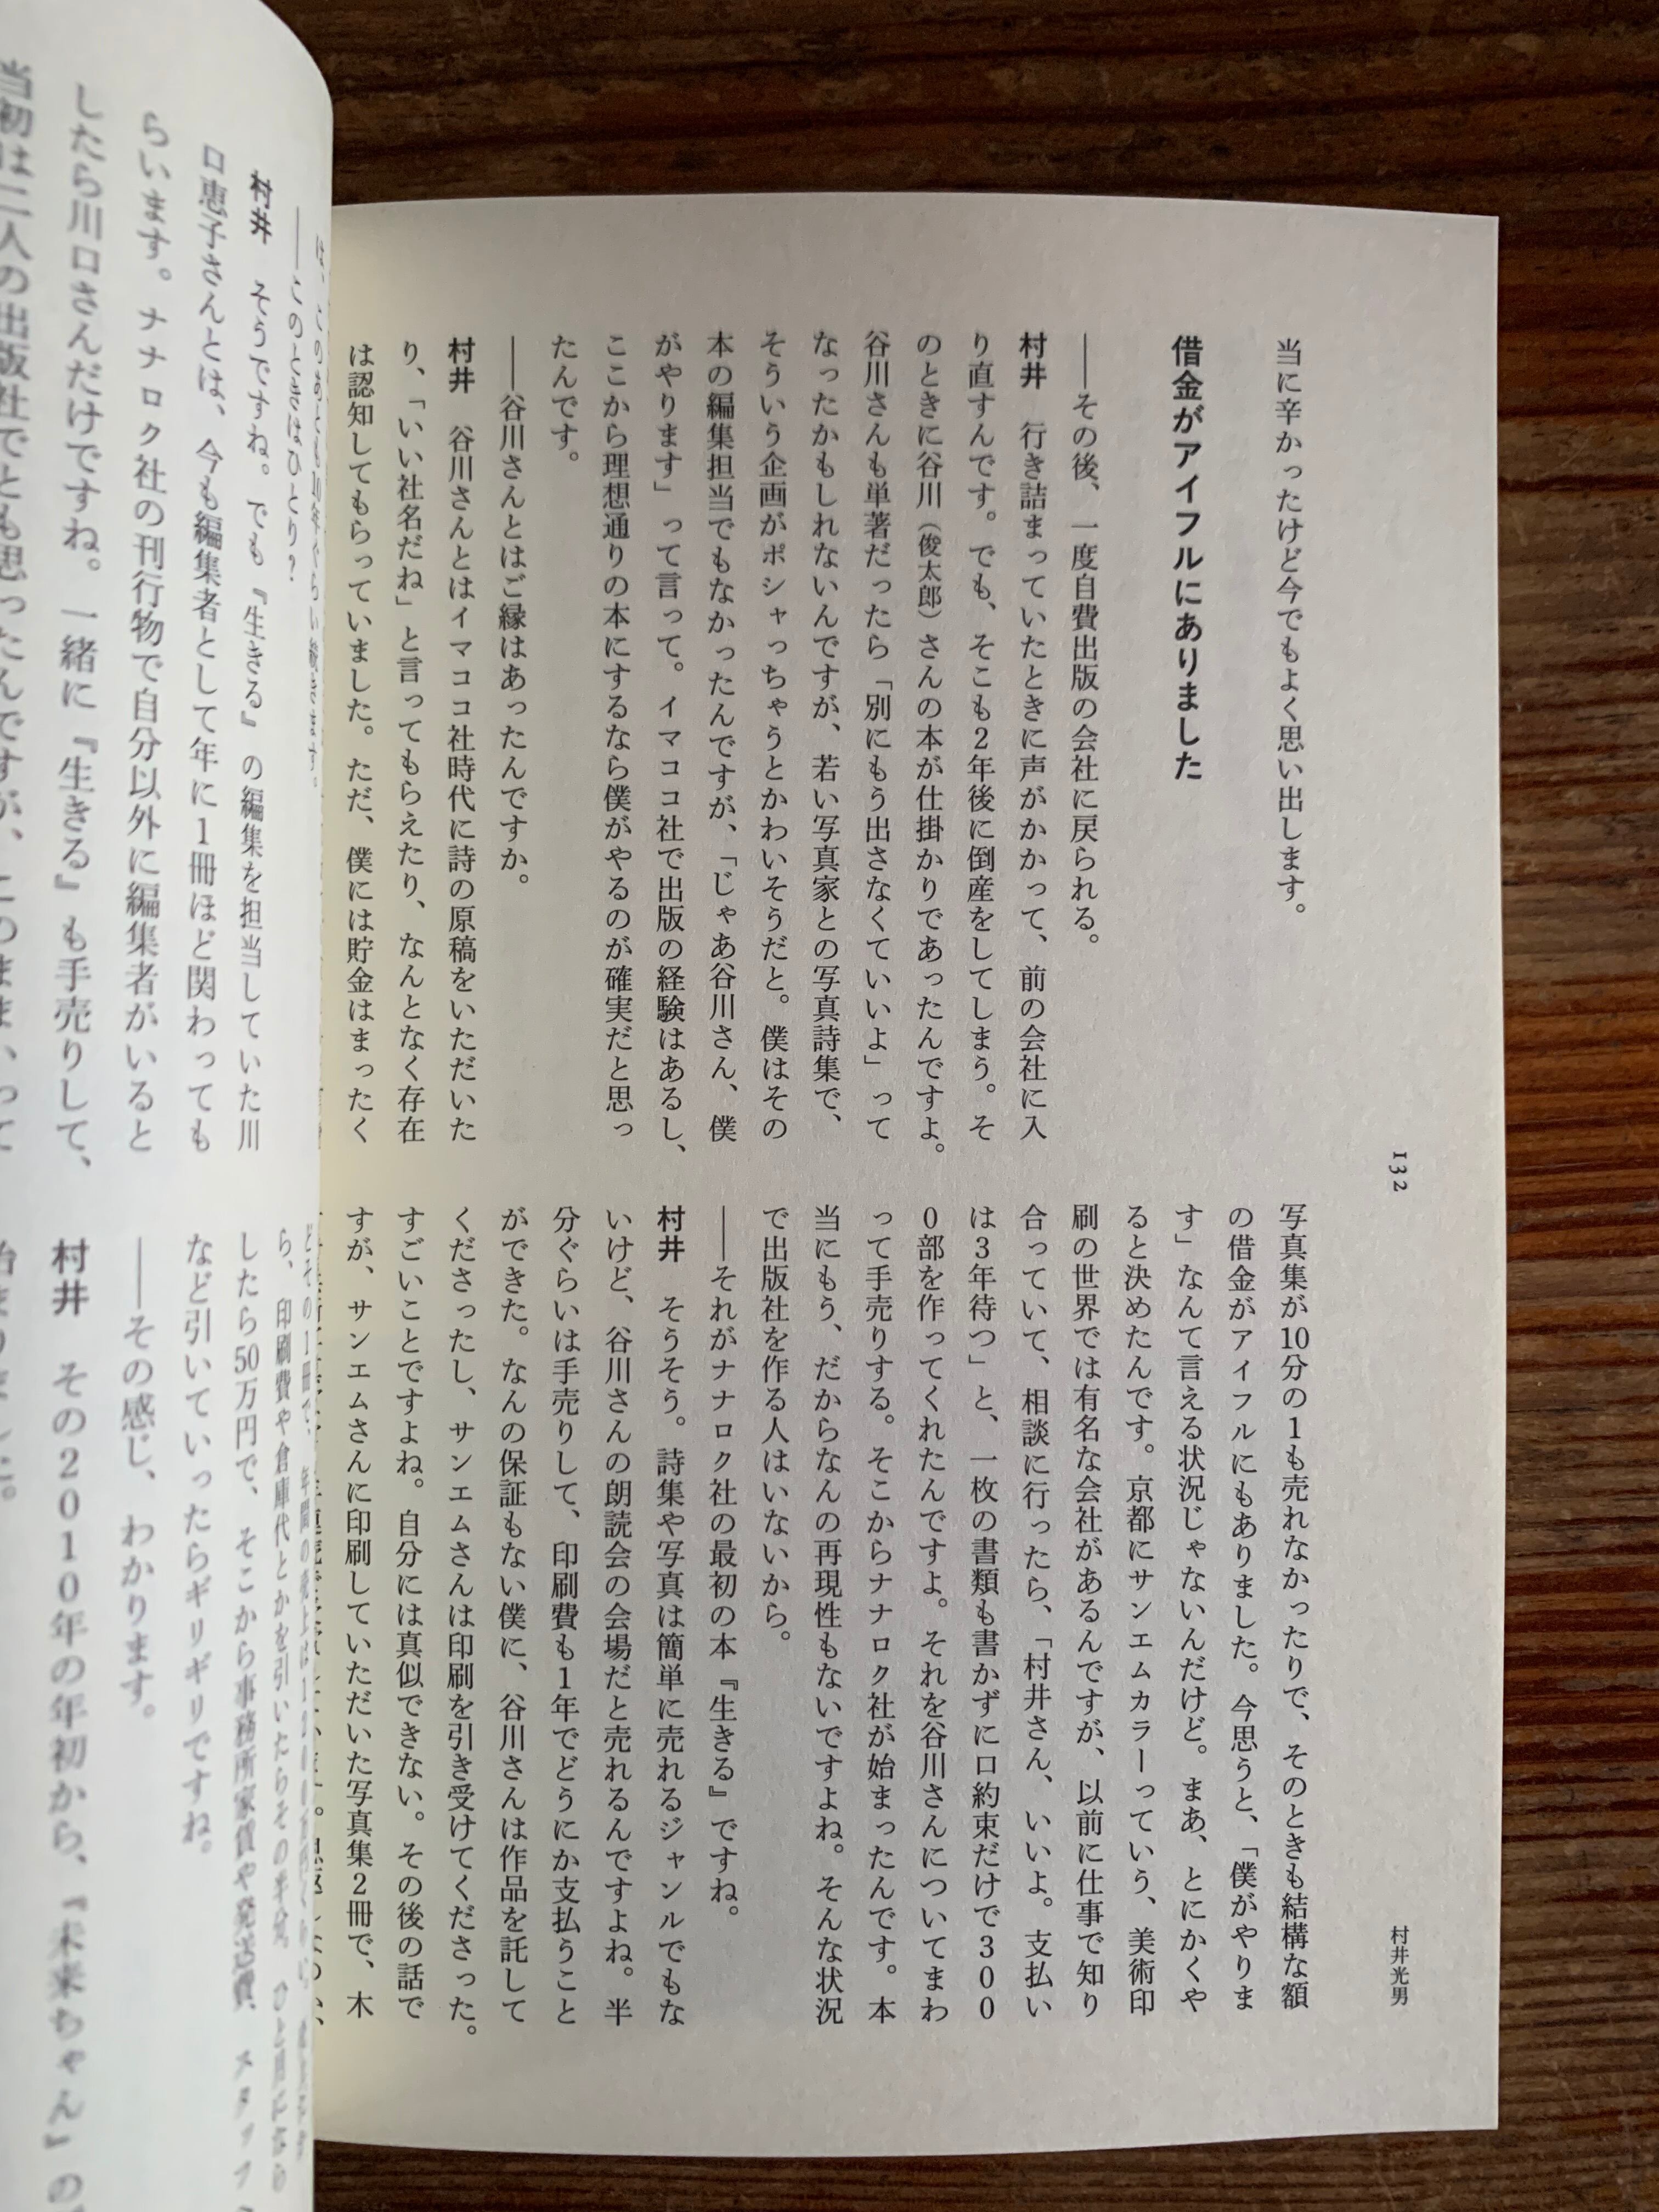 132
村井光男
当に辛かったけど今でもよく思い出します。
借金がアイフルにありました
――その後、一度自費出版の会社に戻られる。
村井　行き詰まっていたときに声がかかって、前の会社に入
り直すんです。でも、そこも2年後に倒産をしてしまう。そ
のときに谷川（俊太郎）さんの本が仕掛かりであったんですよ。
谷川さんも単著だったら「別にもう出さなくていいよ」って
なったかもしれないんですが、若い写真家との写真詩集で、
そういう企画がポシャっちゃうとかわいそうだと。僕はその
本の編集担当でもなかったんですが、「じゃあ谷川さん、僕
がやります」って言って。イマココ社で出版の経験はあるし、
ここから理想通りの本にするなら僕がやるのが確実だと思っ
たんです。
――谷川さんとはご縁はあったんですか。
村井　谷川さんとはイマココ社時代に詩の原稿をいただいた
り、「いい社名だね」と言ってもらえたり、なんとなく存在
は認知してもらっていました。ただ、僕には貯金はまったく
写真集が10分の1も売れなかったりで、そのときも結構な額
の借金がアイフルにもありました。今思うと、「僕がやりま
す」なんて言える状況じゃないんだけど。まあ、とにかくや
ると決めたんです。京都にサンエムカラーっていう、美術印
刷の世界では有名な会社があるんですが、以前に仕事で知り
合っていて、相談に行ったら、「村井さん、いいよ。支払い
は3年待つ」と、一枚の書類も書かずに口約束だけで300
0部を作ってくれたんですよ。それを谷川さんについてまわ
って手売りする。そこからナナロク社が始まったんです。本
当にもう、だからなんの再現性もないですよね。そんな状況
で出版社を作る人はいないから。
――それがナナロク社の最初の本『生きる』ですね。
村井　そうそう。詩集や写真は簡単に売れるジャンルでもな
いけど、谷川さんの朗読会の会場だと売れるんですよね。半
分ぐらいは手売りして、印刷費も1年でどうにか支払うこと
ができた。なんの保証もない僕に、谷川さんは作品を託して
くださったし、サンエムさんは印刷を引き受けてくださった。
すごいことですよね。自分には真似できない。その後の話で
すが、サンエムさんに印刷していただいた写真集2冊で、木
――このときはひとり?
村井　そうですね。でも『生きる』の編集を担当していた川
口恵子さんとは、今も編集者として年に1冊ほど関わっても
らいます。ナナロク社の刊行物で自分以外に編集者がいると
したら川口さんだけですね。一緒に『生きる』も手売りして、
当初は二人の出版社でとも思ったんですが、このまま、って
ら、印刷費や倉庫代とかを引いたらその半分、ひと月になら
したら50万円で、そこから事務所家賃や発送費、スタッフ
など引いていったらギリギリですね。
――その感じ、わかります。
村井　その2010年の年初から、『未来ちゃん』の
始まりました。